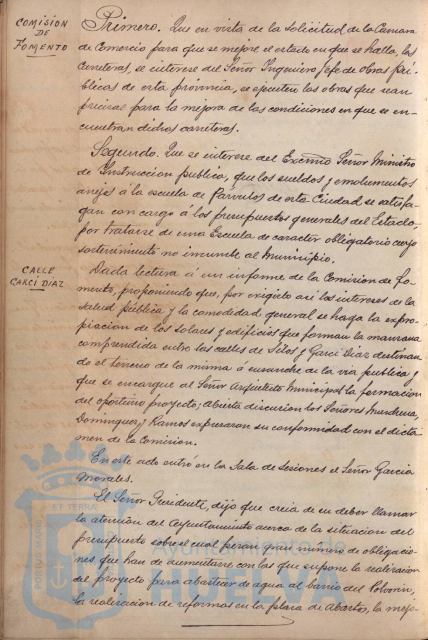 COMISION
DE
FOMENTO
Primero. Que en vista de la solicitud de la Camara
de Comercio para que se mejore el estado en que se halla, las
carreteras, se interese del Señor Ingeniero Jefe de obras pú-
blicas de esta provincia, se ejecuten las obras que sean
precisas para la mejora de las condiciones en que se en-
cuentran dichas carreteras.
Segundo. Que se interese del Excmo Señor Ministro
de Instruccion publica, que los sueldos y emolumentos
anejos á la escuela de Párvulos de esta Ciudad, se satisfa-
gan con cargo á los presupuestos generales del Estado,
por tratarse de una Escuela de caracter obligatorio cuyo
sostenimiento no incumbe al Municipio.
CALLE
GARCI DIAZ
Dada lectura á un informe de la Comision de Fo-
mento, proponiendo que, por exigirlo asi los intereses de la
salud pública y la comodidad general se haga la expro-
piacion de los solares y edificios que forman la manzana
comprendida entre las calles de Silos y Garci Diaz destinan-
do el terreno de la misma á ensanche de la via publica y
que se encargue al Señor Arquitecto Municipal la formacion
del oportuno proyecto; abierta discusion los Señores
Dominguez y Ramos expresaron su conformidad con el dicta-
men de la Comision.
En este acto entró en la Sala de Sesiones el Señor Garcia
Morales.
El Señor Presidente, dijo que creia de su deber llamar
la atencion del Ayuntamiento acerca de la situacion del
presupuesto sobre el cual pesan gran número de obligacio-
nes que han de aumentarse con las que supone la realizacion
del proyecto para abastecer de agua al barrio del Polvorin,
la realizacion de reformas en la plaza de Abastos, la mejo-
PORTUS MARIS ET TERRAE
Ayuntamiento de
HUELVA